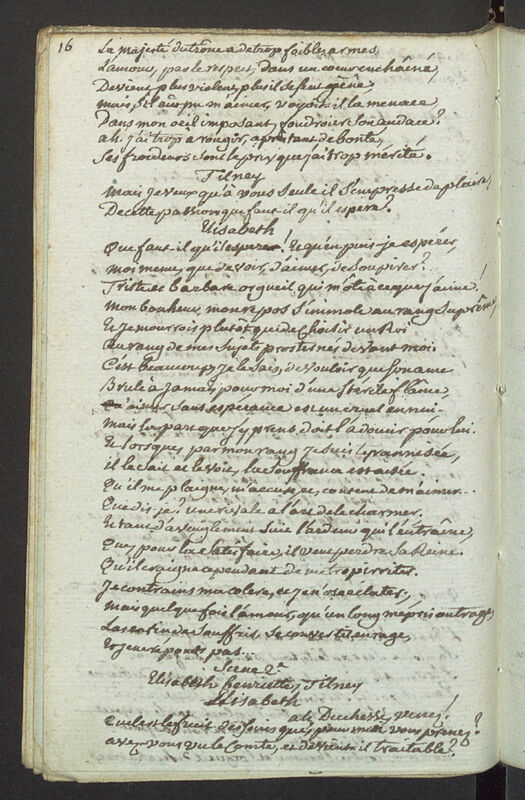 16
La majesté du trône a de trop faibles armes
L'amour, pas le respect, dans un coeur enchaîné,
Devient plus violent, plus il se sent gêné,
mais s'il eût pu m'aimer, voyoit il la menace
Dans mon oeil imposant, foudroier son audace?
ah. j'ai trop a rougir, après tant de bonté,
Ses froideurs sont le prix que j'ai trop merité.
Tilney
Mais je veux qu'à vous seule il s'empresse de plaire,
De cette passion que faut-il qu'il espere?
Elisabeth
Que faut-il qu'il espere! Et qu'en puis je espérer,
moi meme, que de voir, d'aimer, de soupirer?
Triste et barbare orgueil, qui m'ôte ce que j'aime!
Mon bonheur, mon repos s'immole au rang suprême,
Et je mourrois plutôt que de choisir un Roi
Au rang de mes sujets prosternés devant moi.
C'est beaucoup, je le sais, de vouloir que son ame
Brule a jamais pour moi d'une sterile flâme,
Qu'aimer sans espérance est un cruel ennui.
mais la part que j'y prens, doit l'adoucir pour lui.
Et lorsque par mon rang je suis tyrannisée,
il le sait et le voit, la souffrance est aisée
Qu'il me plaigne, m'accuse, et, content de m'aimer...
Que dis-je? une rivale a l'art de le charmer.
Et tant d'aveuglement suit l'ardeur qui l'entraîne,
Que, pour la satisfaire, il veut perdre sa Reine.
Qu'il craigne cependant de me trop irriter.
Je contrains ma colere, et je n'ose eclater.
mais quelque fois l'amour, qu'un long mépris outrage,
Las enfin de souffrir, se convertit en rage,
Et je ne repons pas...
Scene 2e
Elisabeth Henriette, Tilney
Elisabeth
ah, Duchesse, venez!
Quel est le fruit des soins que pour moi vous prenez?
avez-vous vu le Comte, et devient-il traitable?